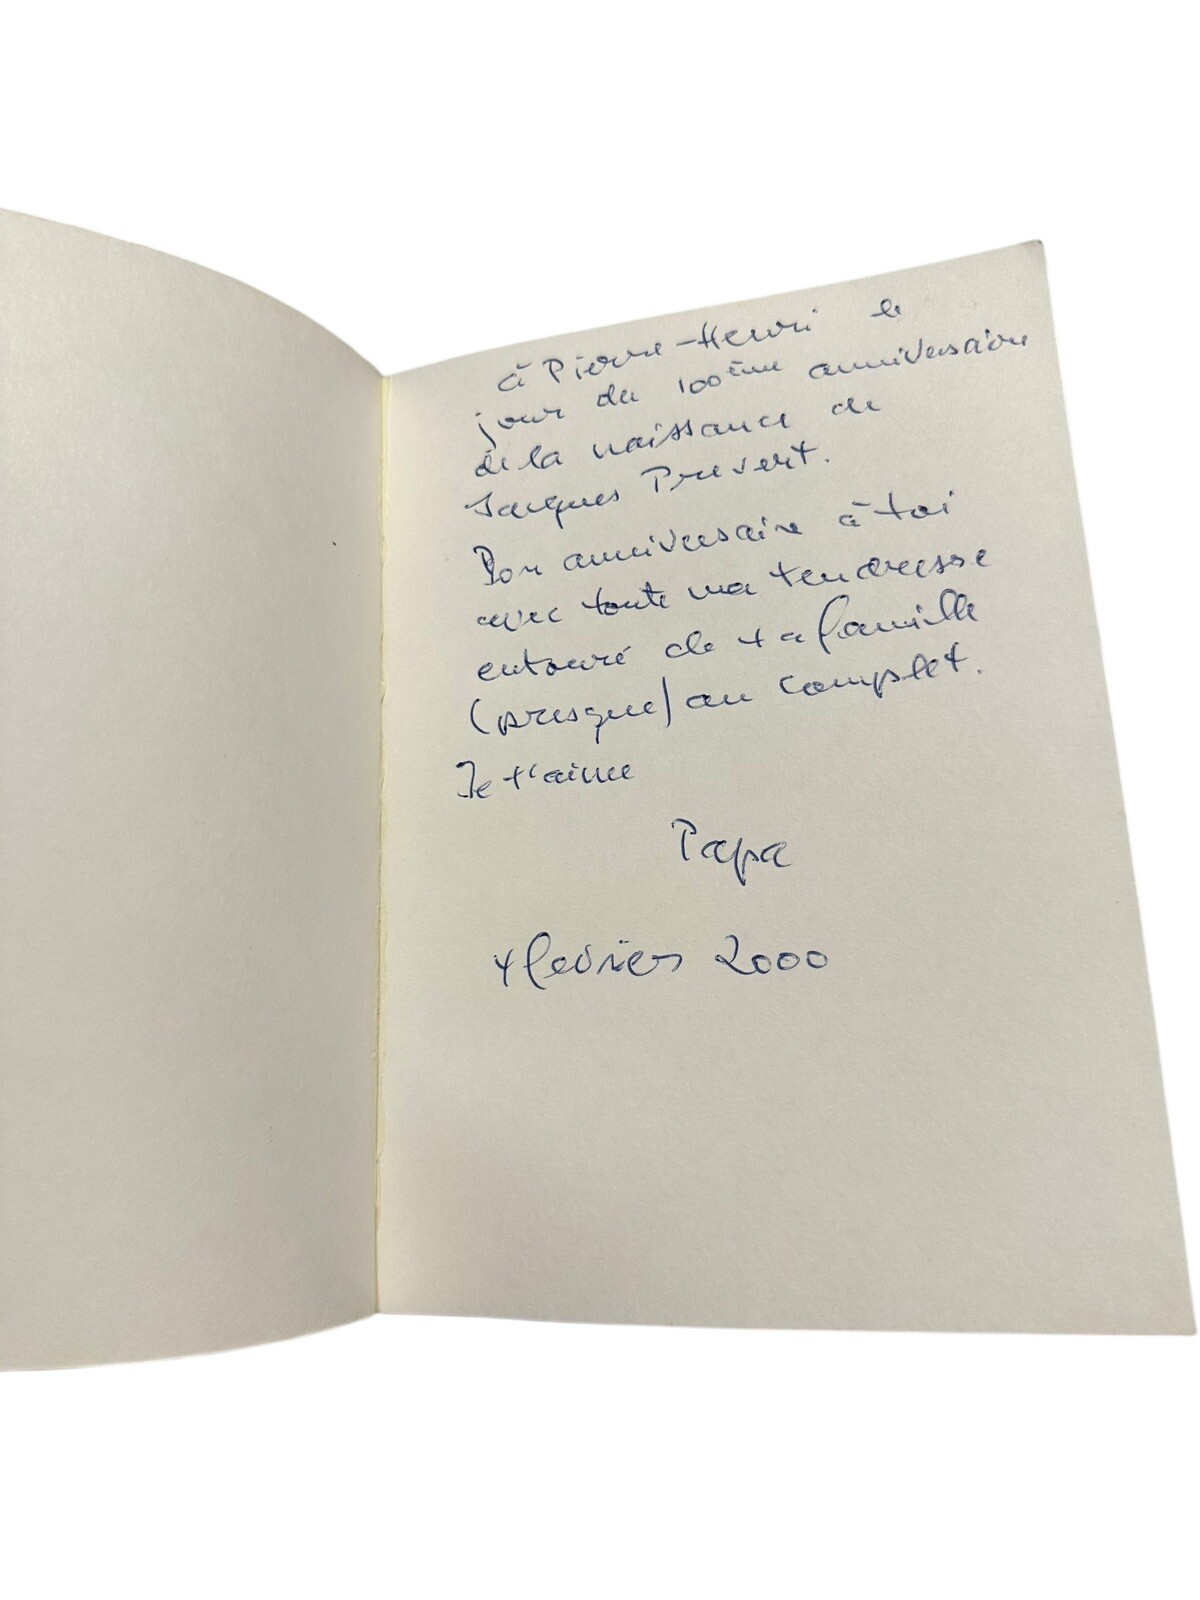 à Pierre-Henri le
jour du 100ème anniversaire
de la naissance de
Jacques Prevert.
Bon anniversaire à toi
avec toute ma tendresse
entouré de ta famille
(presque) au complet.
Je t'aime
Papa
4 fevrier 2000